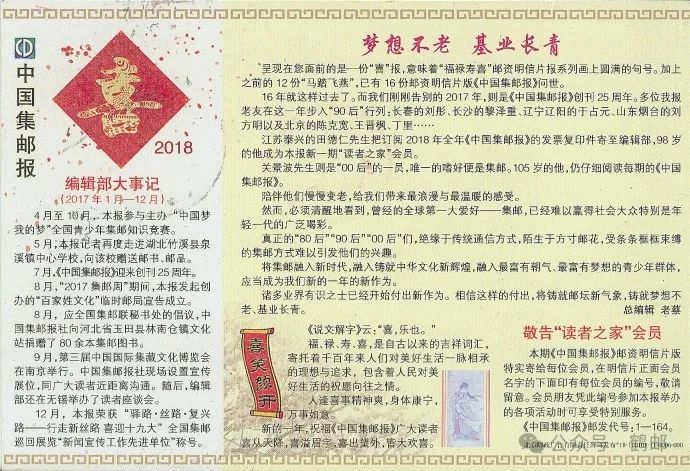 中国集邮报
2018
编辑部大事记
(2017年1月—12月)
4月至10月，本报参与主办“中国梦
我的梦”全国青少年集邮知识竞赛。
5月，本报记者再度走进湖北竹溪县泉
溪镇中心学校，向该校赠送邮书、邮品。
7月，《中国集邮报》迎来创刊25周年。
8月，“2017集邮周”期间，本报发起创
办的“百家姓文化”临时邮局宣告成立。
8月，应全国集邮联秘书处的倡议，中
国集邮报社向河北省玉田县林南仓镇文化
站捐赠了80余本集邮图书。
9月，第三届中国国际集藏文化博览会
在南京举行。中国集邮报社现场设置宣传
展位，同广大读者近距离沟通。随后，编辑
部还在无锡举办了读者座谈会。
12月，本报荣获“驿路·丝路·复兴
路——行走新丝路 喜迎十九大”全国集邮
巡回展览“新闻宣传工作先进单位”称号。
梦想不老 基业长青
呈现在您面前的是一份“喜”报，意味着“福禄寿喜”邮资明信片报系列画上圆满的句号。加上
之前的12份“马踏飞燕”，已有16份邮资明信片版《中国集邮报》问世。
16年就这样过去了。而我们刚刚告别的2017年，则是《中国集邮报》创刊25周年。多位我报
老友在这一年步入“90后”行列：长春的刘彤、长沙的黎泽重、辽宁辽阳的于占元、山东烟台的刘
方明以及北京的陈克宽、王晋枫、丁里……
江苏泰兴的田德仁先生把订阅2018年全年《中国集邮报》的发票复印件寄至编辑部，98岁
的他成为本报新一期“读者之家”会员。
关景波先生则是“00后”的一员，唯一的嗜好便是集邮。105岁的他，仍仔细阅读每期的《中国
集邮报》。
陪伴他们慢慢变老，给我们带来最浪漫与最温暖的感受。
然而，必须清醒地看到，曾经的全球第一大爱好——集邮，已经难以赢得社会大众特别是年
轻一代的广泛喝彩。
真正的“80后”“90后”“00后”们，绝缘于传统通信方式，陌生于方寸邮花，受条条框框束缚
的集邮方式难以引发他们的兴趣。
将集邮融入新时代，融入铸就中华文化新辉煌，融入最富有朝气、最富有梦想的青少年群体，
应当成为我们新的一年的新作为。
诸多业界有识之士已经开始付出新作为。相信这样的付出，将铸就邮坛新气象，铸就梦想不
老、基业长青。
总编辑 老蔡
喜笑颜开
《说文解字》云：“喜，乐也。”
福、禄、寿、喜，是自古以来的吉祥词汇，
寄托着千百年来人们对美好生活一脉相承
的理想与追求，包含着人民对美
好生活的祝愿向往之情。
人逢喜事精神爽，身体康宁，
万事如意。
新的一年，祝福《中国集邮报》广大读者
喜从天降，喜溢眉宇，喜出望外，皆大欢喜。
敬告“读者之家”会员
本期《中国集邮报》邮资明信片版
特实寄给每位会员，在明信片正面会员
名字的下面印有每位会员的编号，敬请
留意。会员朋友凭此编号参加本报举办
的各项活动时可享受特别服务。
《中国集邮报》邮发代号：1—164。
公众号·鹤邮